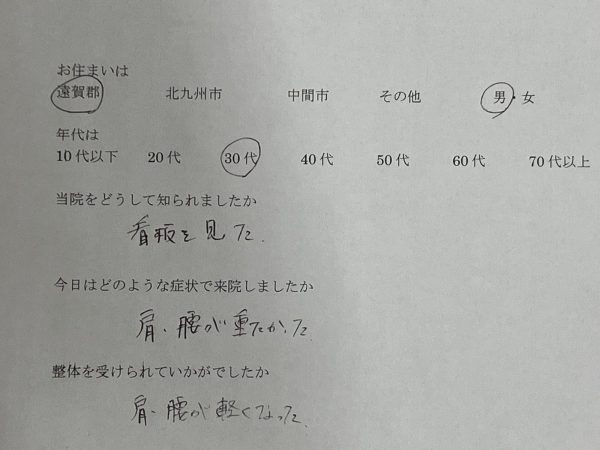 お住まいは
遠賀郡 北九州市 中間市 その他 男・女
年代は
10代以下 20代 30代 40代 50代 60代 70代以上
当院をどうして知られましたか
看板を見た.
今日はどのような症状で来院しましたか
肩、腰が重たかった
整体を受けられていかがでしたか
肩、腰が軽くなった.